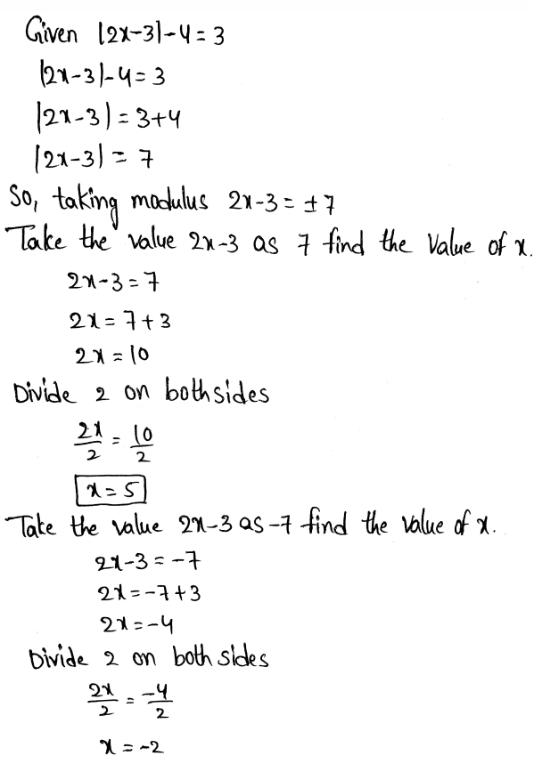 Given |2x-3|-4=3
|2x-3|-4=3
|2x-3|=3+4
|2x-3|=7
So, taking modulus 2x-3=±7
Take the value 2x-3 as 7 find the value of x.
2x-3=7
2x=7+3
2x=10
Divide 2 on both sides
2x/2 = 10/2
x=5
Take the value 2x-3 as -7 find the value of x.
2x-3=-7
2x=-7+3
2x=-4
Divide 2 on both sides
2x/2 = -4/2
x=-2